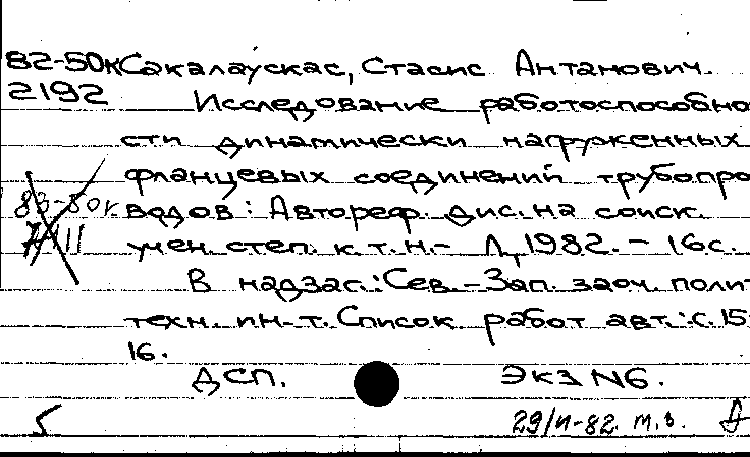 82-50к Сакалаускас, Стасис Антанович.
2192 Исследование работоспособно
сти динамически нагруженных
фланцевых соединений трубопро
83-50г. водов: Автореф. дис. на соиск.
учен. степ. к.т.н.- Л, 1982. - 16с.
В надзаг.: Сев.-Зап. заоч. поли-
техн. ин-т. Список работ авт.: с.15-
16.
ДСП. Экз N6.
5 29/IV-82. т.в.